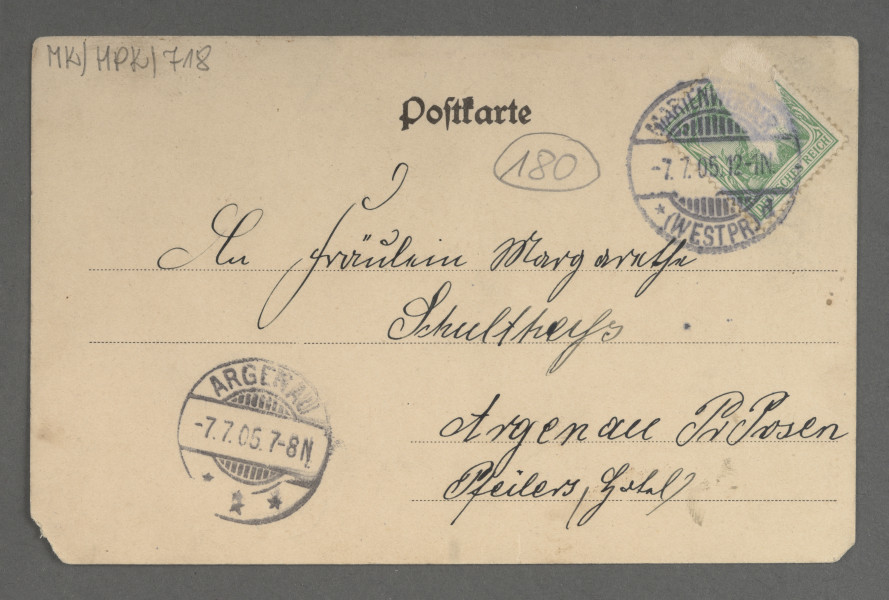 MK/MPK/718
Postkarte
180
MARIENWERDER
-7.7.05.12-1N.
* (WESTPR.) *
REICH
An Fräulein Margarethe
Schultheiss
ARGENAU
-7.7.05.7-8N.
* * *
Argenau Pr Posen
Pfeilers, Hotel